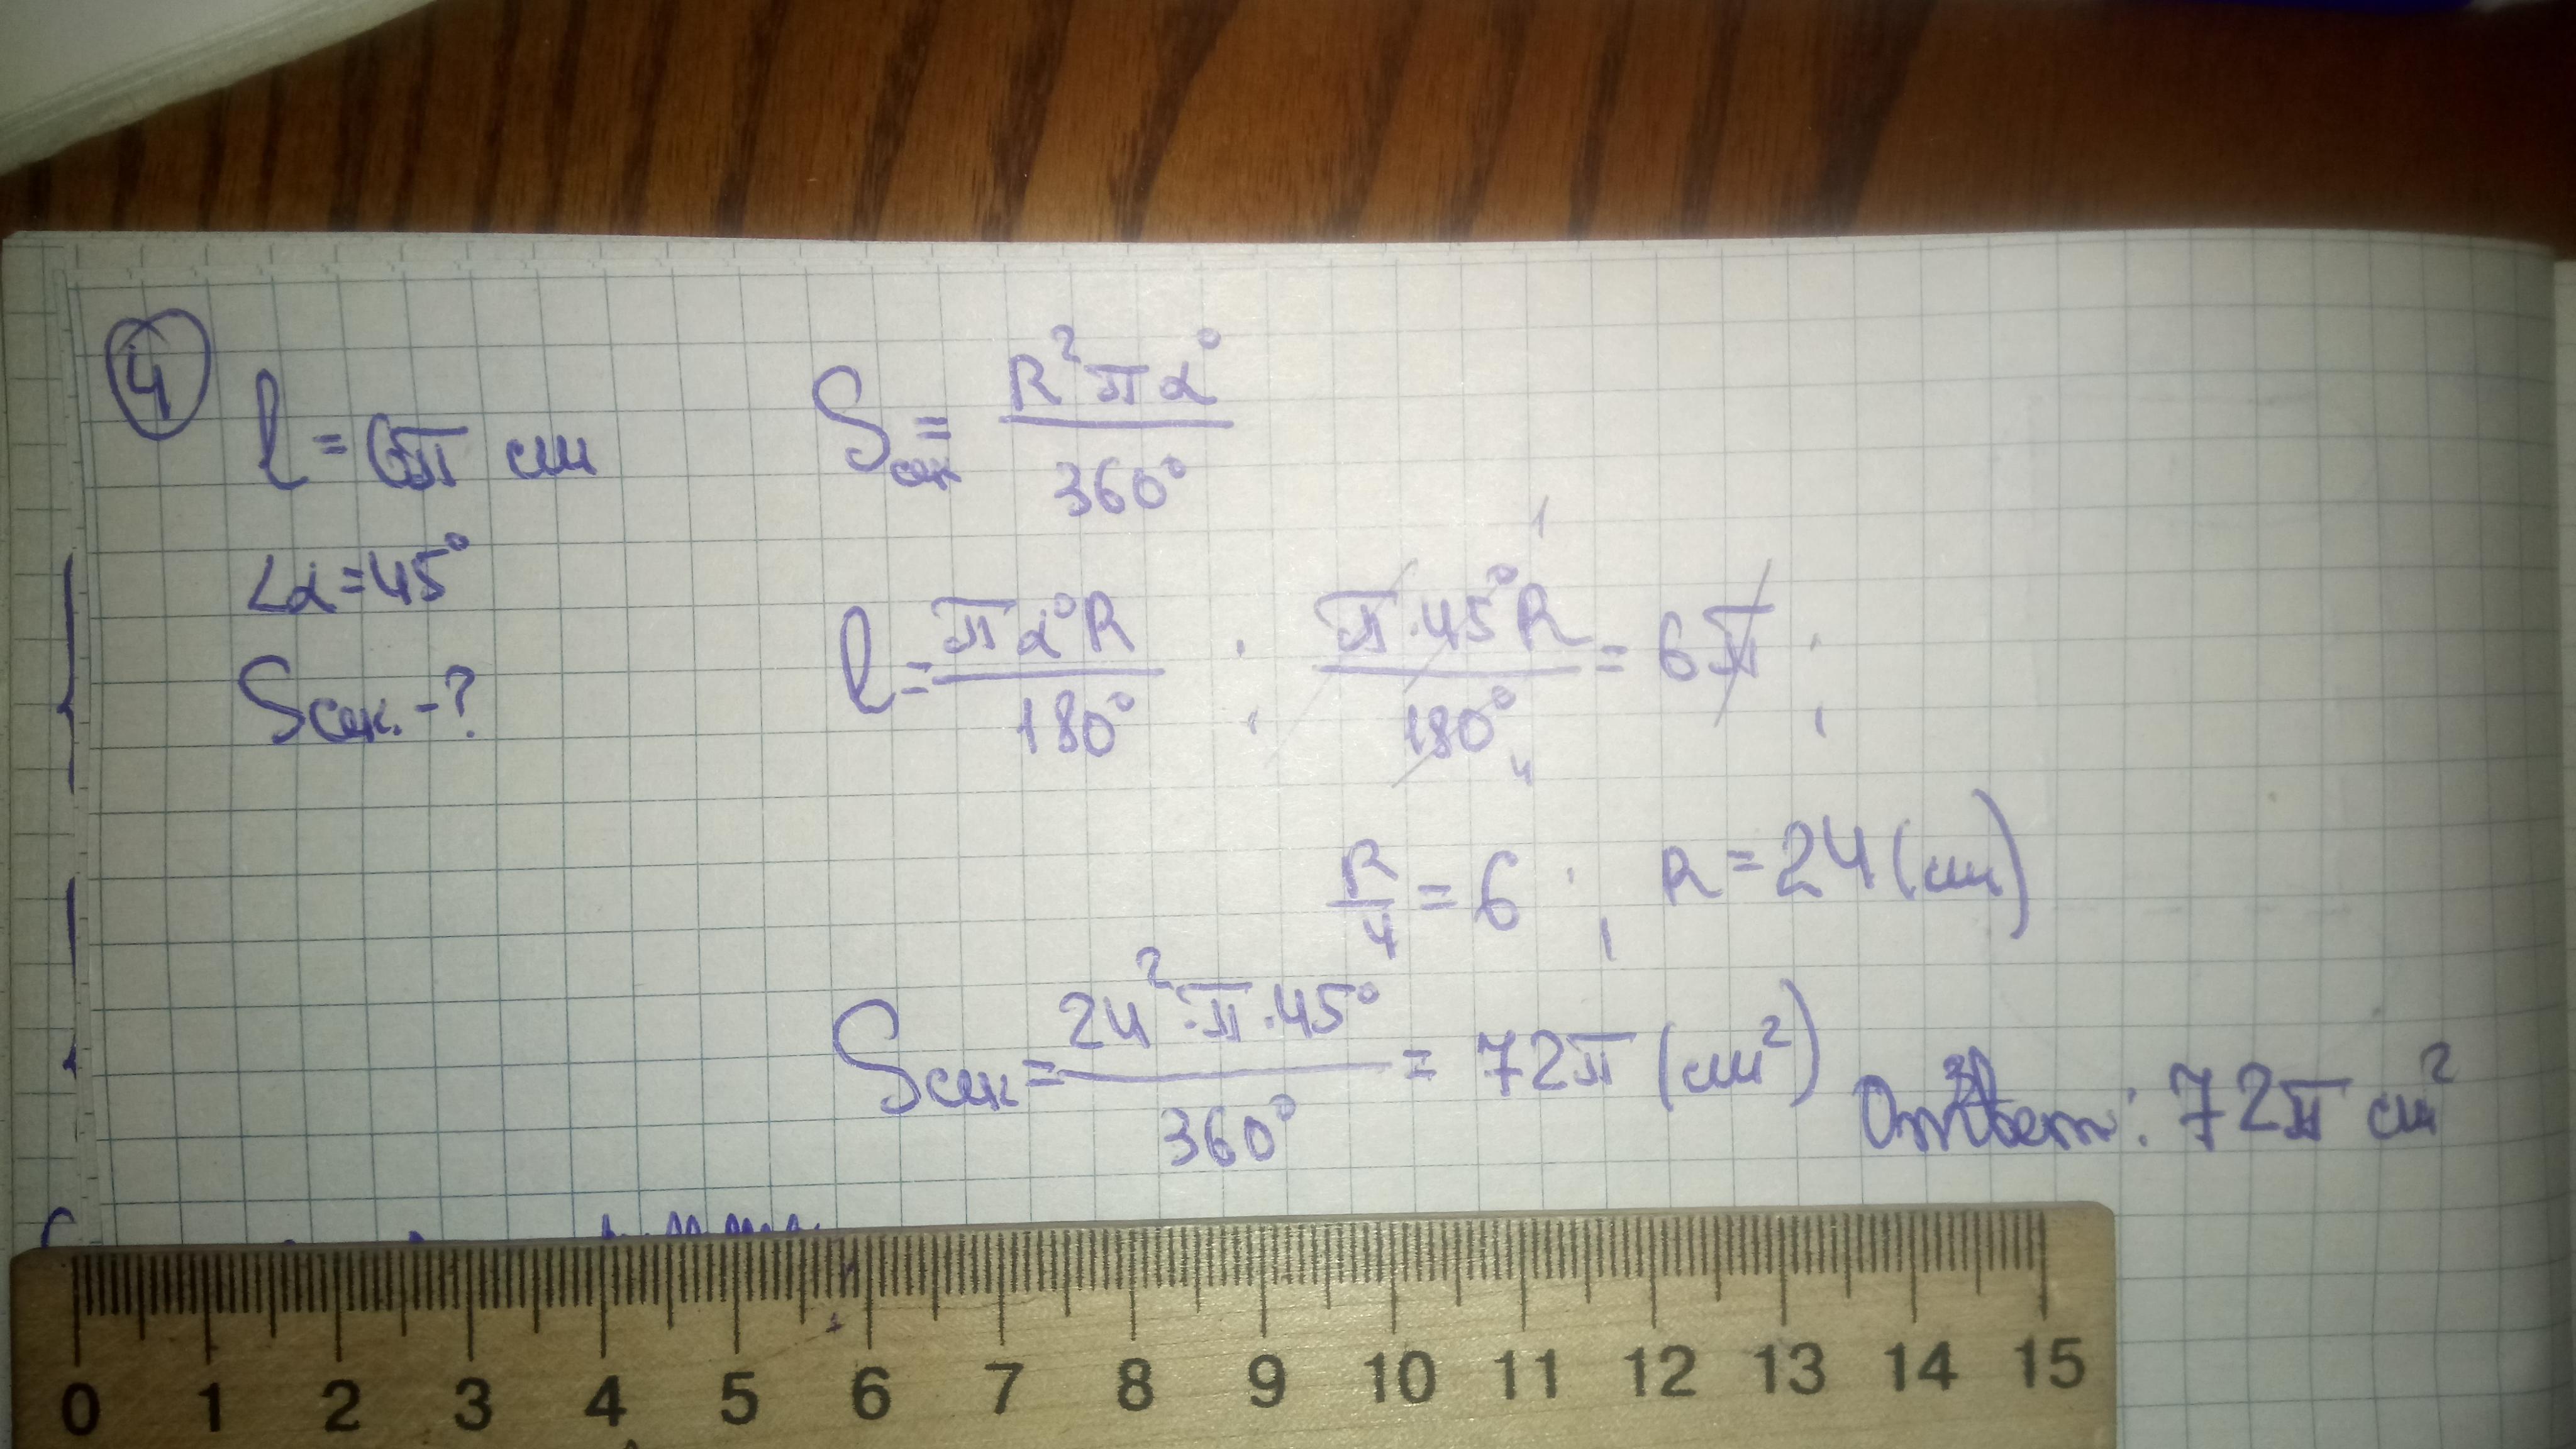 4
l = 6π см
∠α = 45°
Sсек. - ?
Sсек = R²πα° / 360°
l = πα°R / 180° ; π·45°R / 180° = 6π ;
1
4
R/4 = 6 ; R = 24 (см)
Sсек = 24²·π·45° / 360° = 72π (см²)
Ответ: 72π см²
0 1 2 3 4 5 6 7 8 9 10 11 12 13 14 15